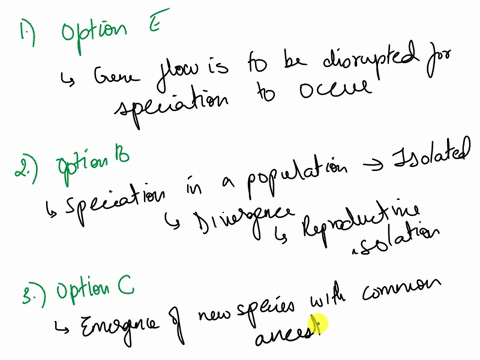 1.) Option E
↳ Gene flow is to be disrupted for
speciation to occur
2.) Option B
↳ Speciation in a population → Isolated
↳ Divergence
↳ Reproductive
isolation
3.) Option C
↳ Emergence of new species with common
ancest